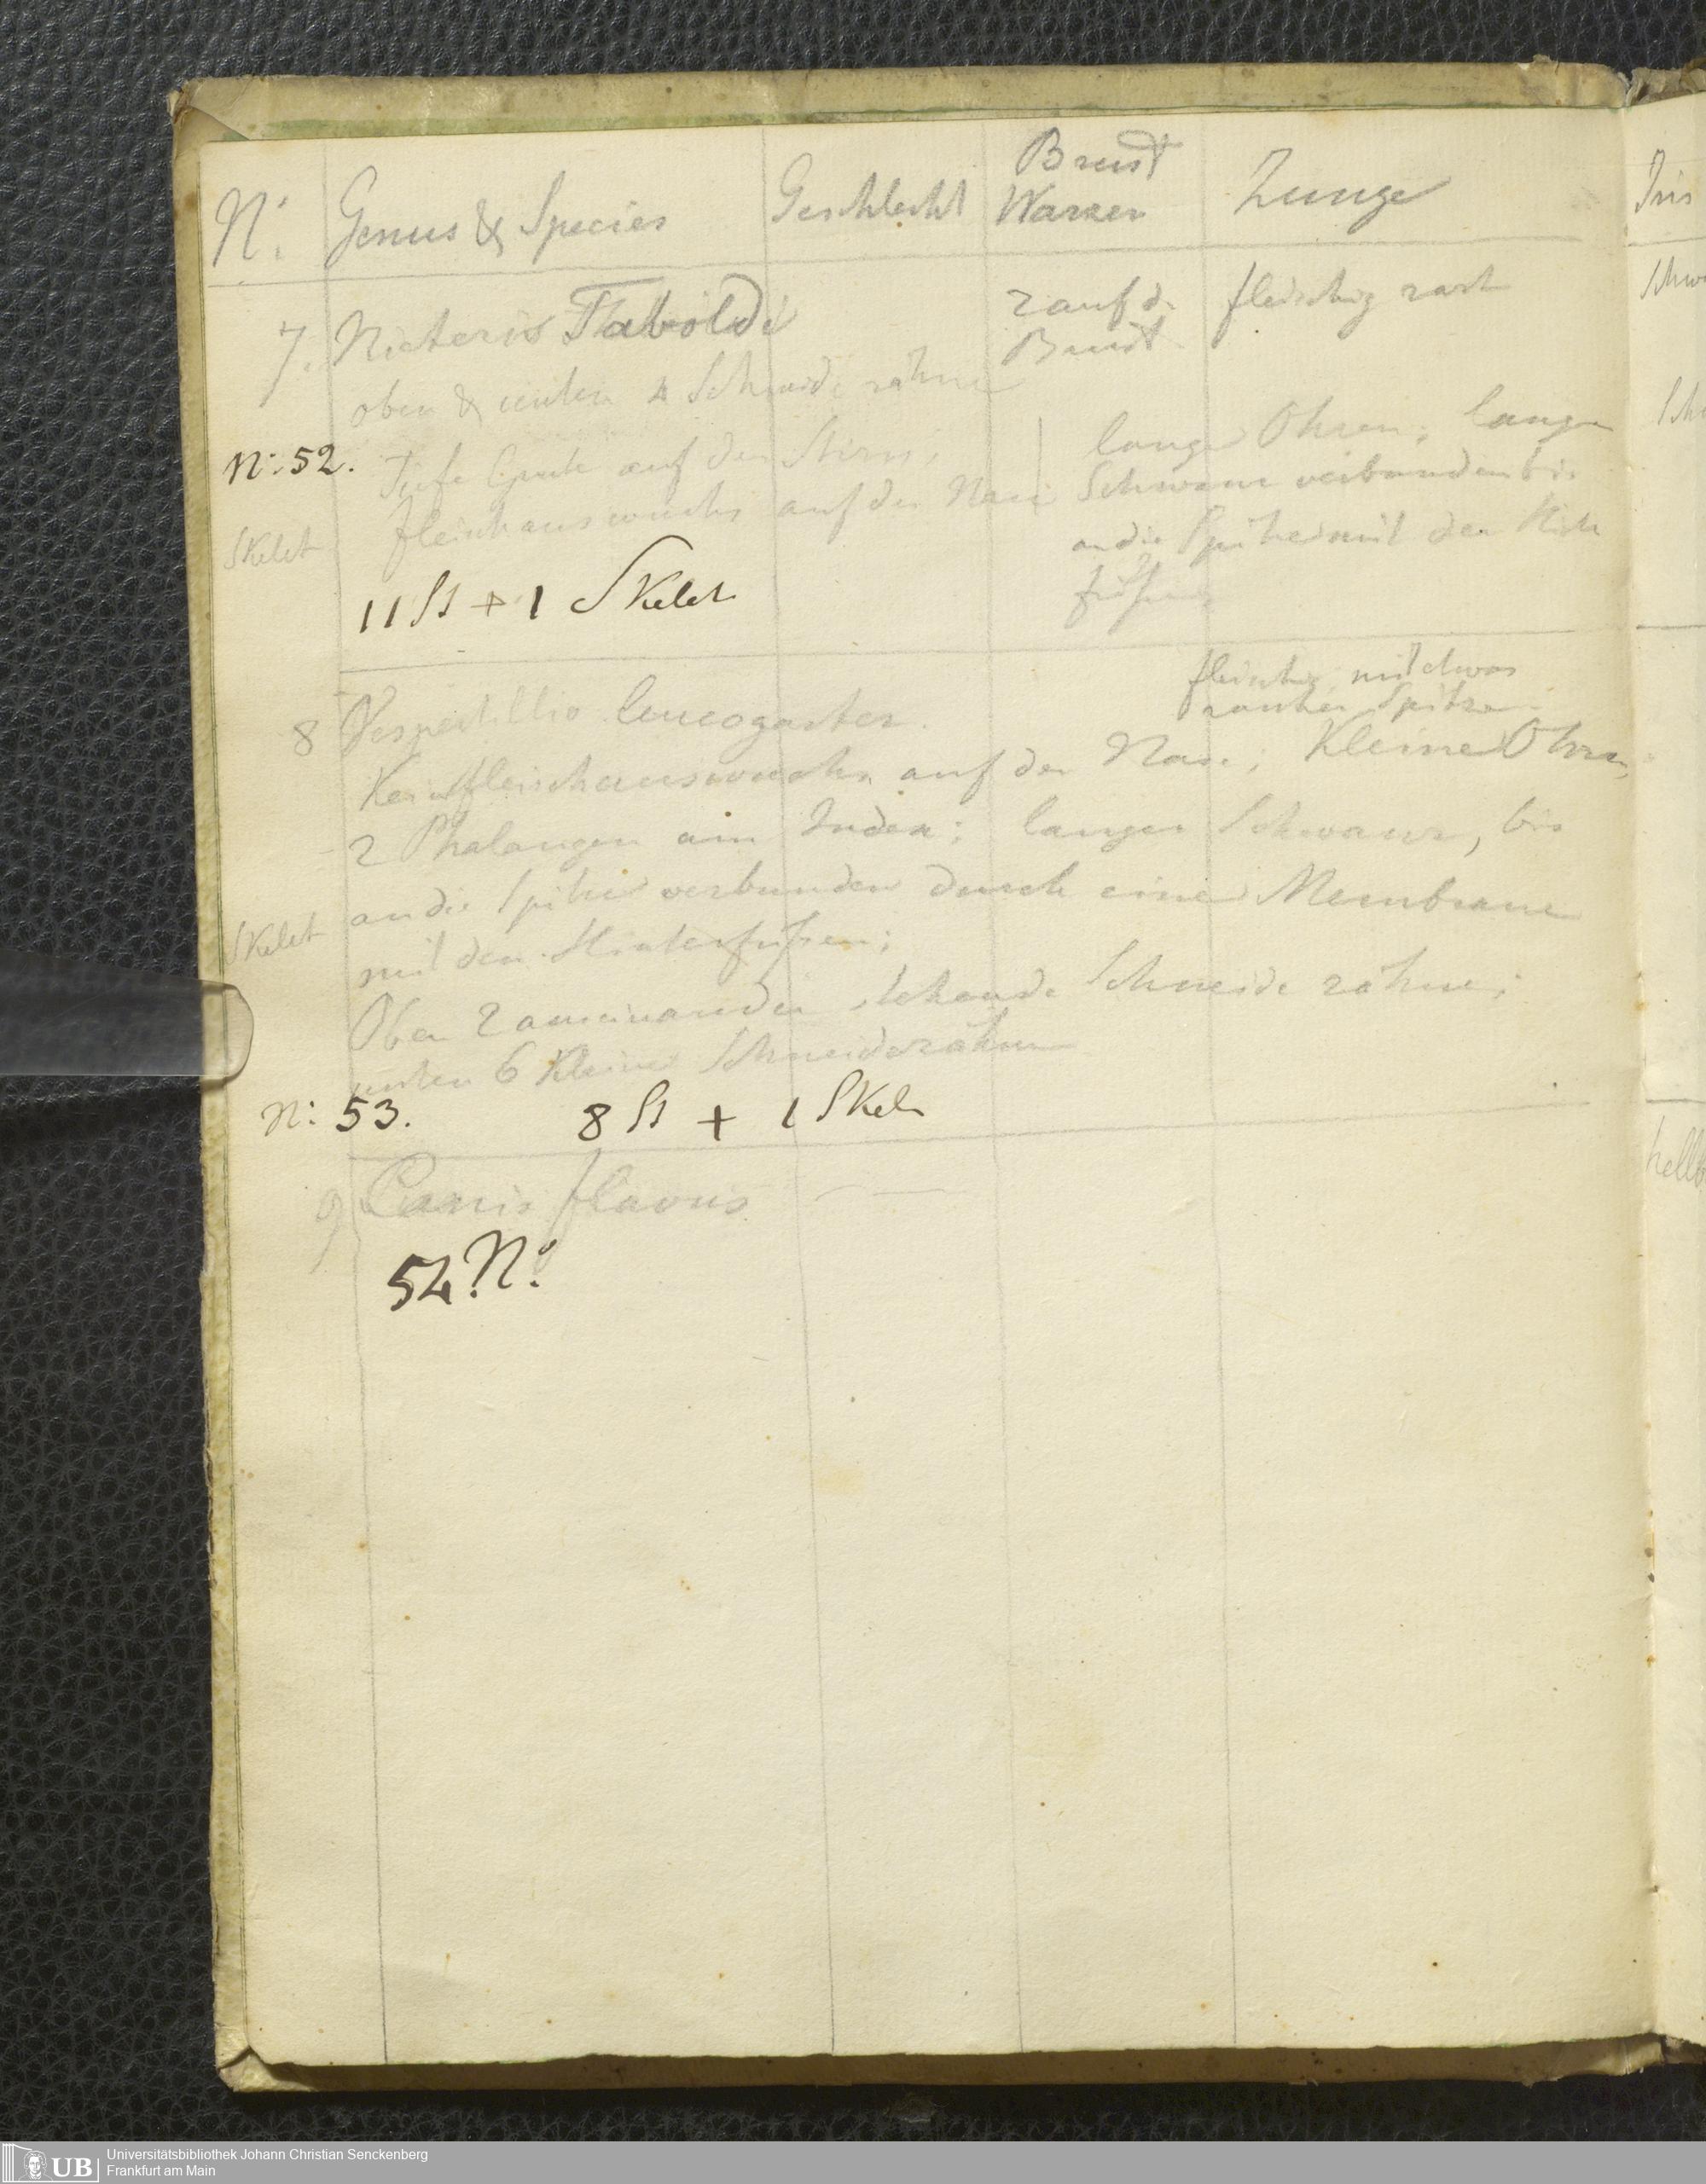 Brust
N: Genus & Species Geschlecht Warzen Zunge Iris
7. Nicteris 2 auf d. fleischig zart
Brust
oben & unten 4 Schneidezähne
N: 52. Tiefe auf der Stirn; lange Ohren; langer
Skelet fleischauswuchs auf der Nase Schwanz verbunden bis
an die Spitze mit den
11 St + 1 Skelet
fleischig mit etwas
rauher Spitze
8 Vespertillio leucogaster.
Kein fleischauswuchs auf der Nase; Kleine Ohren,
2 Phalangen am Index; langer Schwanz, bis
an die Spitze verbunden durch eine Membrane
Skelet mit den Hinterfüßen;
Oben 2 aneinander stehende Schneidezähne;
unten 6 Kleine Schneidezähne
N: 53. 8 St + 1 Skel
9 Canis flavus —
54. N:
UB Universitätsbibliothek Johann Christian Senckenberg
Frankfurt am Main